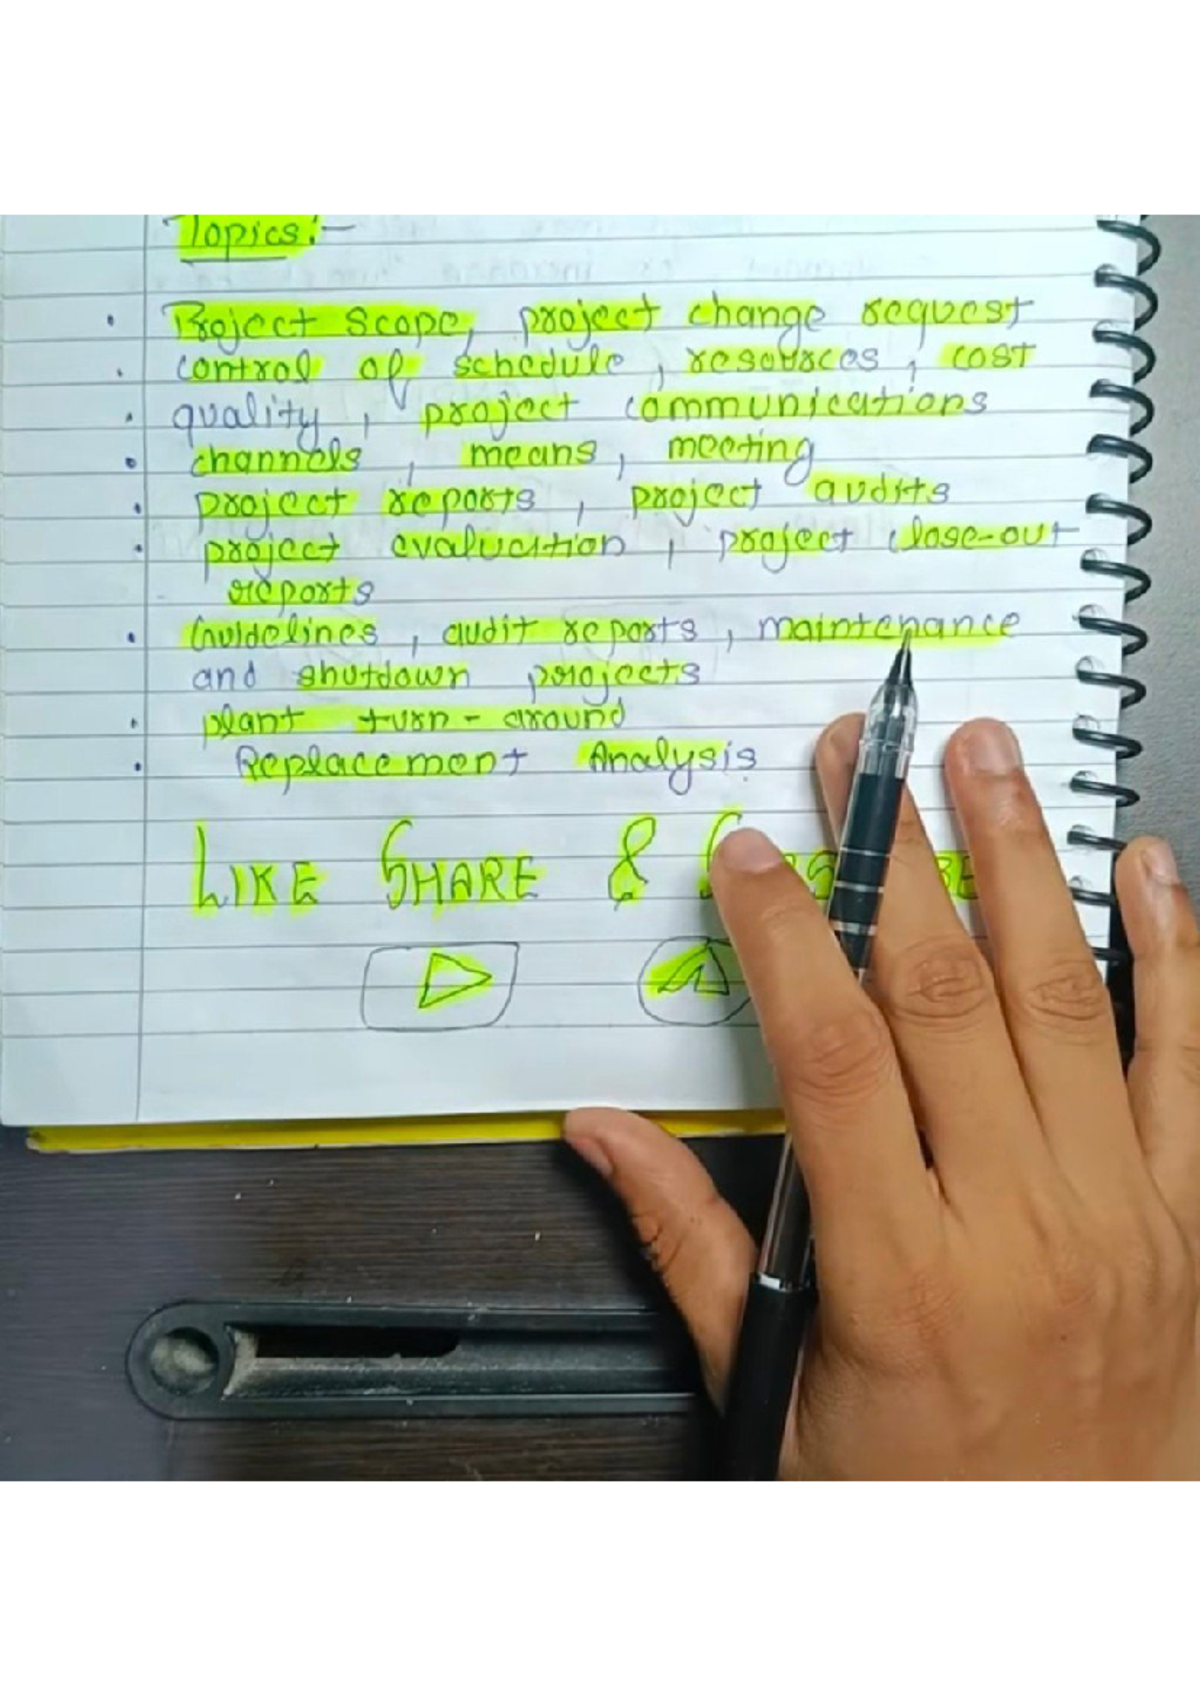 Topics:-
Project Scope, project change request
control of schedule, resources, cost
quality, project communications
channels, means, meeting
project reports, project audits
project evaluation, project close-out
reports
Guidelines, audit reports, maintenance
and shutdown projects
plant turn-around
Replacement Analysis.
LIKE SHARE &